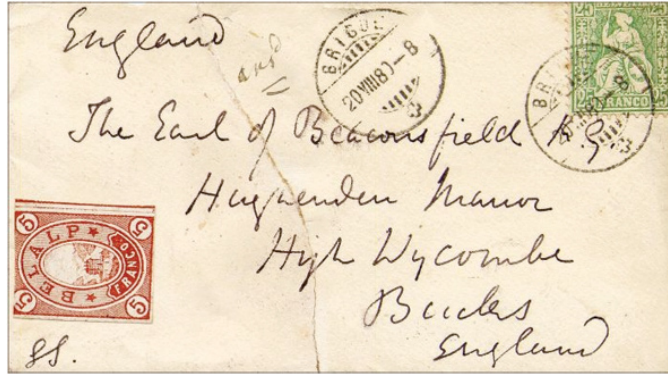 England
ansd
BRIGUE
20 VIII 80-8
25
FRANCO
The Earl of Beaconsfield K.G.
Hughenden Manor
High Wycombe
Bucks
England
5 5
BELALP
FRANCO
5 5